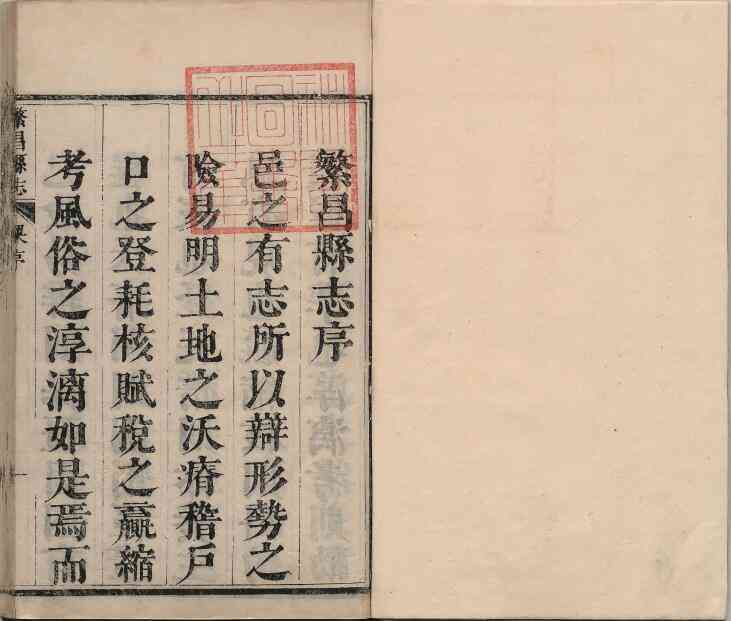 繁昌縣志序
邑之有志所以辯形勢之
險易明土地之沃瘠稽戶
口之登耗核賦稅之贏縮
考風俗之淳漓如是焉而
繁昌縣志